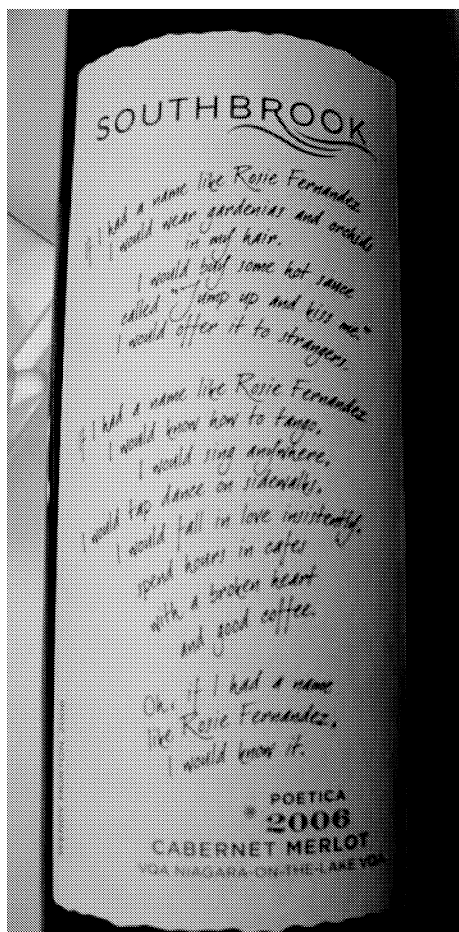 SOUTHBROOK
If I had a name like Rosie Fernandez
I would wear gardenias and orchids
in my hair.
I would buy some hot sauce
called "Jump up and kiss me."
I would offer it to strangers.
If I had a name like Rosie Fernandez
I would know how to tango,
I would sing anywhere,
I would tap dance on sidewalks,
I would fall in love insistently,
spend hours in cafes
with a broken heart
and good coffee.
Oh, if I had a name
like Rosie Fernandez,
I would know it.
POETICA
2006
CABERNET MERLOT
VQA NIAGARA-ON-THE-LAKE VQA